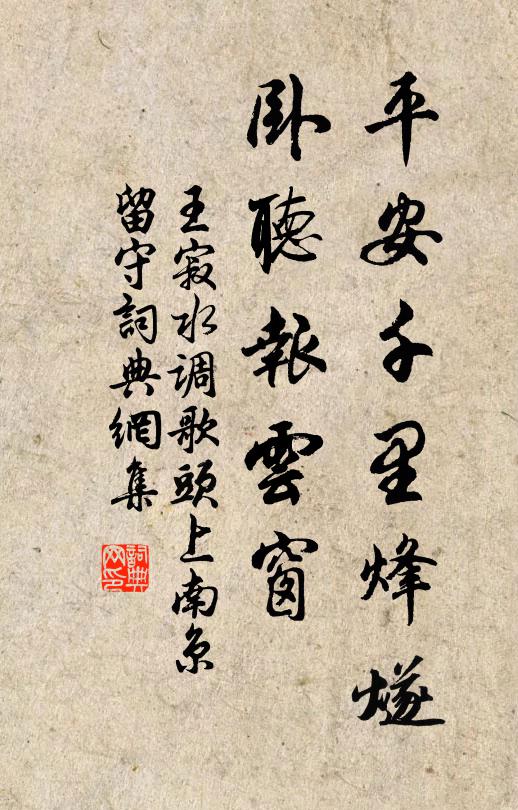 平安千里烽燧
卧聽報雲窗
王寂水调歌頭上南京
留守詞典網集
詞典网印